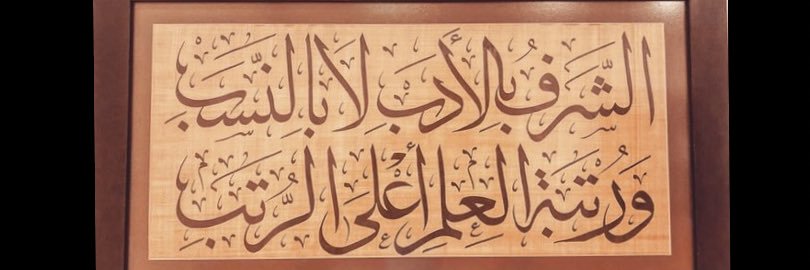 الشَّرَفُ بِالأَدَبِ لَا بِالنَّسَبِ
وَرُتْبَةُ العِلْمِ أَعْلَى الرُّتَبِ